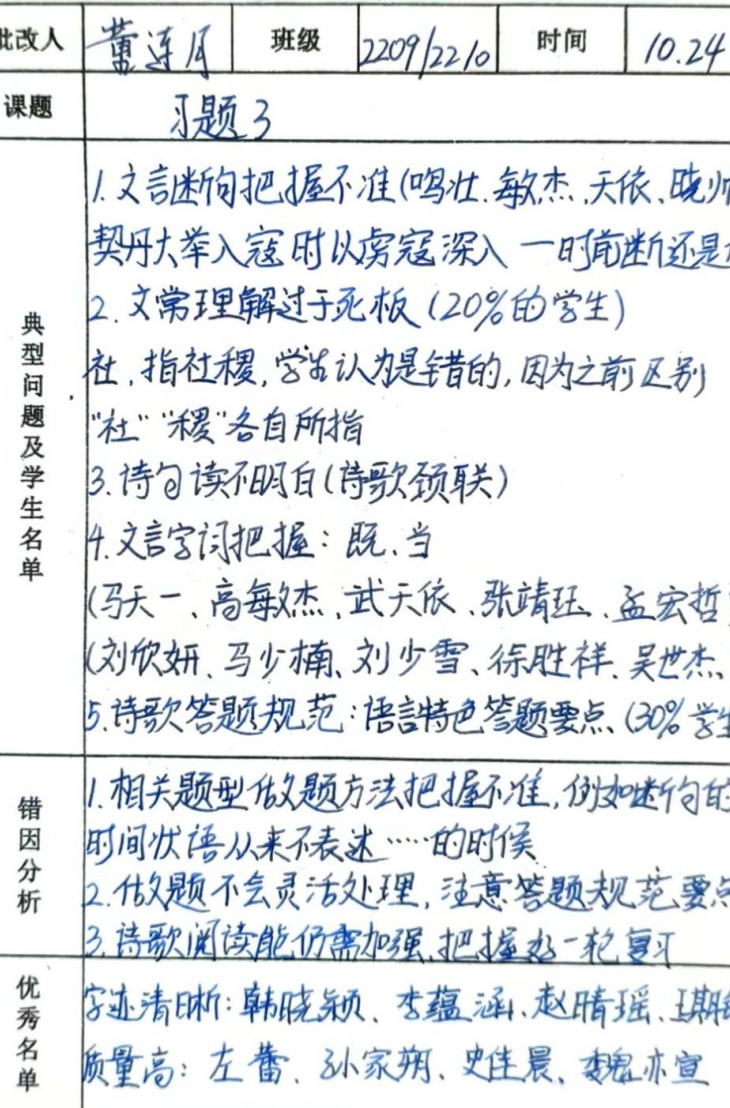 批改人 董连月 班级 2209/2210 时间 10.24
课题 习题3
典型问题及学生名单
1.文言断句把握不准(鸣壮、敏杰、天依、晓帅
契丹大举入寇时以虏寇深入 一时前断还是
2.文常理解过于死板(20%的学生)
社,指社稷,学生认为是错的,因为之前区别
"社""稷"各自所指
3.诗句读不明白(诗歌颈联)
4.文言字词把握:既、当
(马天一、高敏杰、武天依、张靖珏、孟宏哲
(刘欣妍、马少楠、刘少雪、徐胜祥、吴世杰、
5.诗歌答题规范:语言特色答题要点、(30%学生
错因分析
1.相关题型做题方法把握不准,例如断句的
时间状语从来不表述……的时候
2.做题不会灵活处理,注意答题规范要点
3.诗歌阅读能仍需加强,把握好一轮复习
优秀名单
字迹清晰:韩晓颖、李蕴涵、赵晴瑶、
质量高:左蕾、孙家朔、史佳晨、魏亦宣